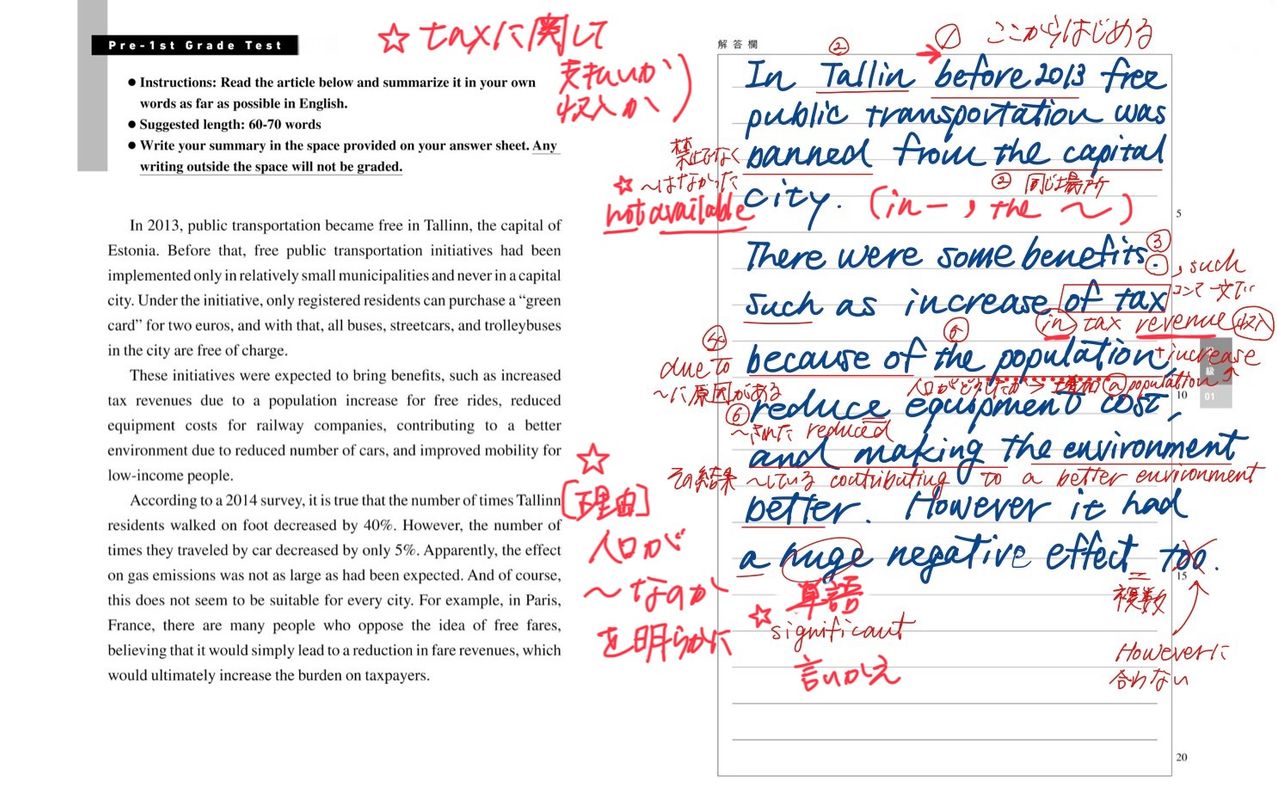 Pre-1st Grade Test
● Instructions: Read the article below and summarize it in your own
words as far as possible in English.
● Suggested length: 60-70 words
● Write your summary in the space provided on your answer sheet. Any
writing outside the space will not be graded.
☆ taxに関して
支払いか
収入か
In 2013, public transportation became free in Tallinn, the capital of
Estonia. Before that, free public transportation initiatives had been
implemented only in relatively small municipalities and never in a capital
city. Under the initiative, only registered residents can purchase a “green
card” for two euros, and with that, all buses, streetcars, and trolleybuses
in the city are free of charge.
These initiatives were expected to bring benefits, such as increased
tax revenues due to a population increase for free rides, reduced
equipment costs for railway companies, contributing to a better
environment due to reduced number of cars, and improved mobility for
low-income people.
According to a 2014 survey, it is true that the number of times Tallinn
residents walked on foot decreased by 40%. However, the number of
times they traveled by car decreased by only 5%. Apparently, the effect
on gas emissions was not as large as had been expected. And of course,
this does not seem to be suitable for every city. For example, in Paris,
France, there are many people who oppose the idea of free fares,
believing that it would simply lead to a reduction in fare revenues, which
would ultimately increase the burden on taxpayers.
☆
[理由]
人口が
〜なのか
を明らかに
解答欄
② ① ここからはじめる
In Tallin before 2013 free
public transportation was
禁止でなく
banned from the capital
☆〜はなかった
② 同じ場所
not available
city. (in ー, the 〜)
5
There were some benefits.
③ , such
such as increase of tax
コンマで一文で
in tax revenue 収入
④ ⑤
due to because of the population + increase
〜に原因がある
人口がどうしたか→増加 a population
10
級
01
⑥ reduce equipment cost,
〜された reduced
and making the environment
その結果 〜している contributing to a better environment
better. However it had
a huge negative effect too.
15
☆ 単語
significant
言いかえ
複数
Howeverに
合わない
20